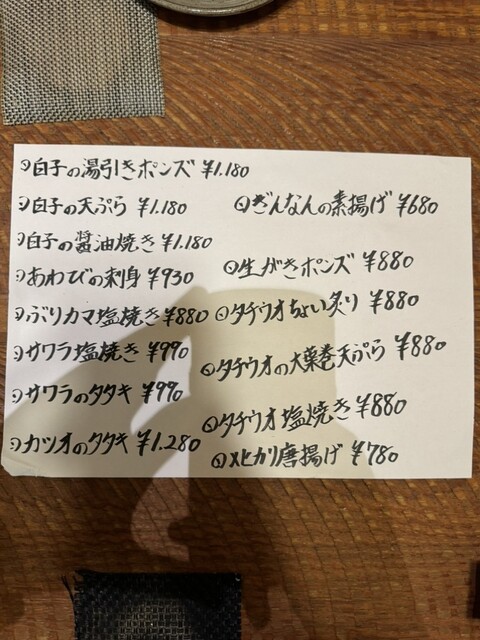 白子の湯引きポンズ ¥1.180
白子の天ぷら ¥1.180
白子の醤油焼き ¥1.180
あわびの刺身 ¥930
ぶりカマ塩焼き ¥880
サワラ塩焼き ¥990
サワラのタタキ ¥990
カツオのタタキ ¥1.280
ぎんなんの素揚げ ¥680
生がきポンズ ¥880
タチウオちょい炙り ¥880
タチウオの大葉巻天ぷら ¥880
タチウオ塩焼き ¥880
メヒカリ唐揚げ ¥780